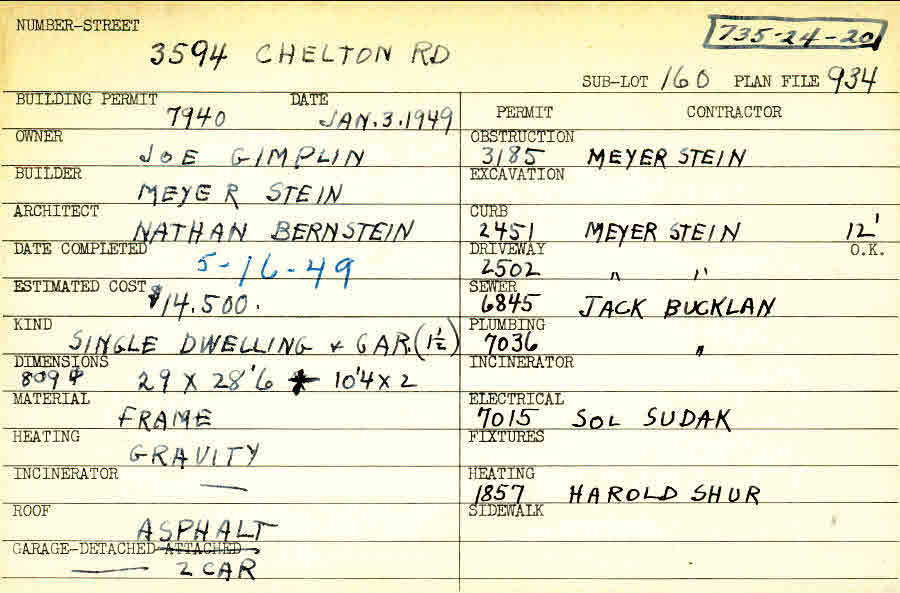 NUMBER-STREET
3594 CHELTON RD
735-24-20
SUB-LOT 160 PLAN FILE 934
BUILDING PERMIT DATE
7940 JAN.3.1949
OWNER
JOE GIMPLIN
BUILDER
MEYER STEIN
ARCHITECT
NATHAN BERNSTEIN
DATE COMPLETED
5-16-49
ESTIMATED COST
$14.500.
KIND
SINGLE DWELLING + GAR.(1½)
DIMENSIONS
809 29 X 28'6 + 10'4 X 2
MATERIAL
FRAME
HEATING
GRAVITY
INCINERATOR
—
ROOF
ASPHALT
GARAGE-DETACHED-ATTACHED
2 CAR
PERMIT CONTRACTOR
OBSTRUCTION
3185 MEYER STEIN
EXCAVATION
CURB
2451 MEYER STEIN 12'
DRIVEWAY O.K.
2502 " "
SEWER
6845 JACK BUCKLAN
PLUMBING
7036 "
INCINERATOR
ELECTRICAL
7015 SOL SUDAK
FIXTURES
HEATING
1857 HAROLD SHUR
SIDEWALK